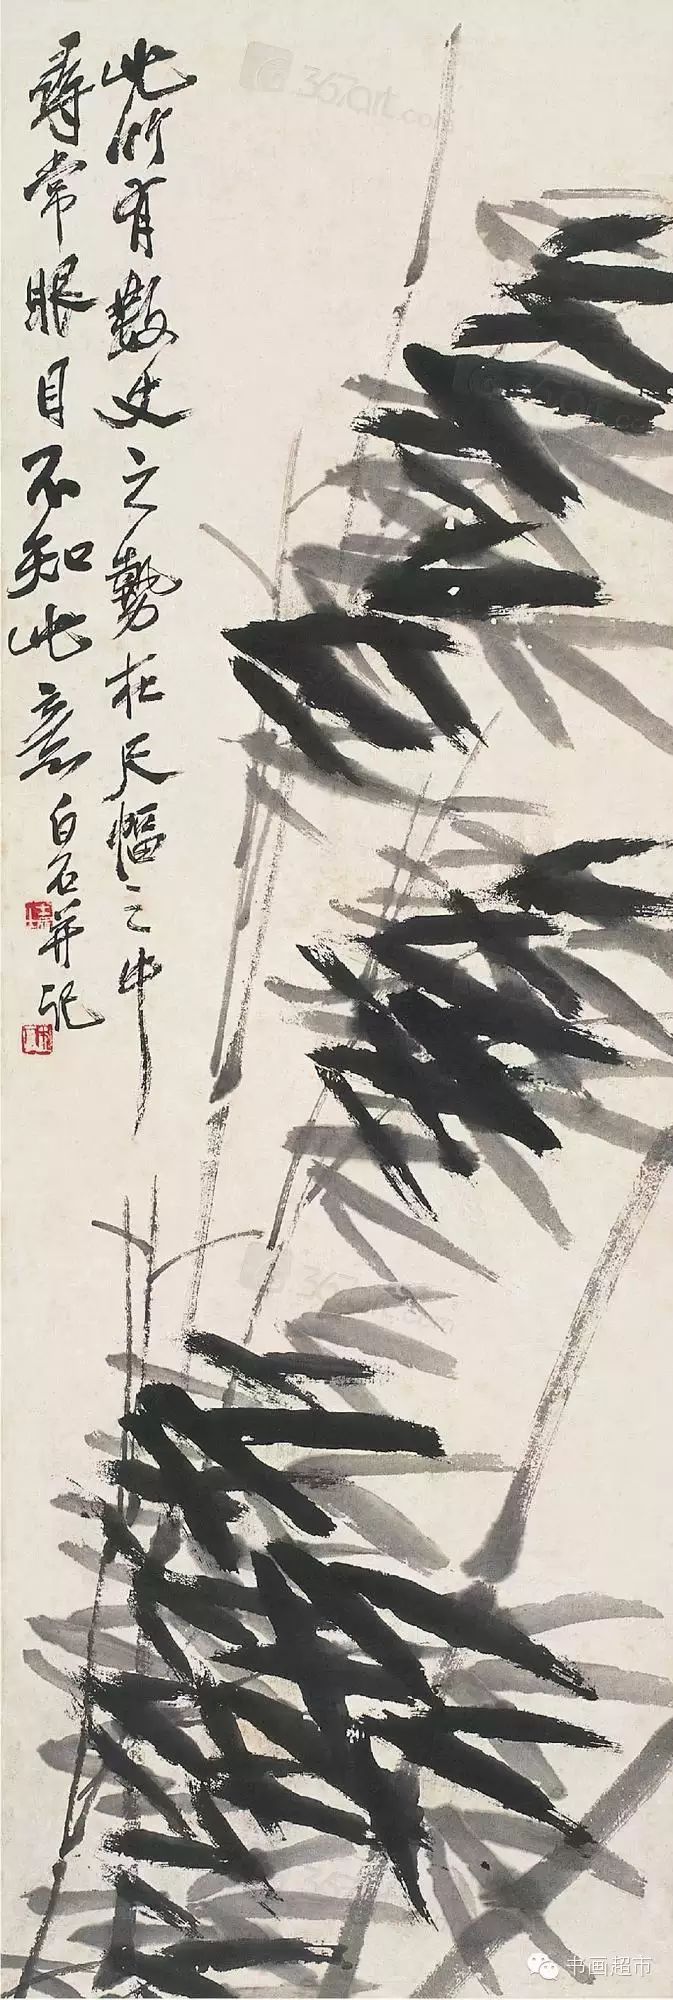 此竹有數丈之勢在尺幅之中
尋常眼目不知此意 白石并記
367art.com
367art.com
书画超市